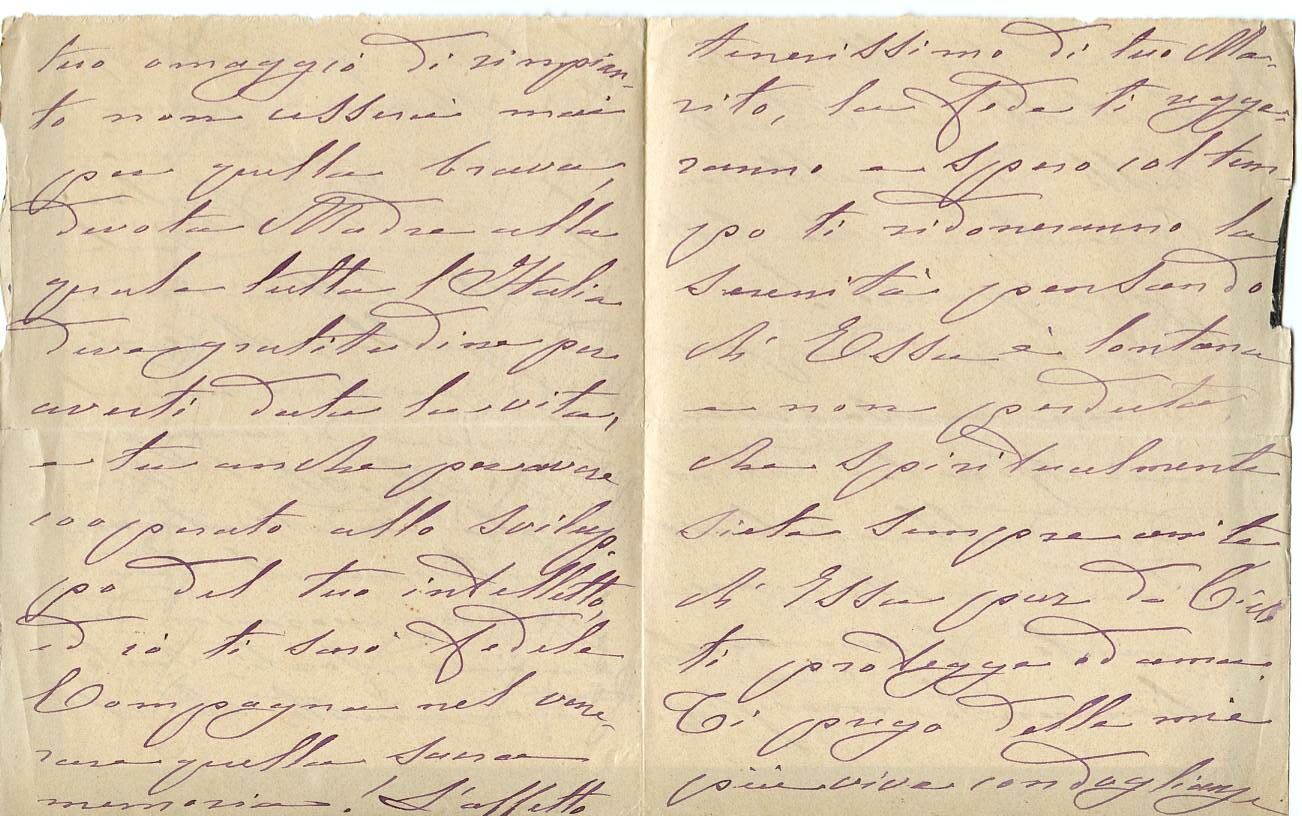 tuo omaggio di rimpian-
to non cesserà mai
per quella brava,
devota Madre alla
quale tutta l'Italia
deve gratitudine per
averti data la vita,
e tu anche per avere
cooperato allo svilup
po del tuo intelletto,
ed io ti sarò fedele
Compagna nel vene-
rare quella sacra
memoria! L'affetto
tenerissimo di tuo Ma-
rito, la Fede ti regge-
ranno e spero col tem
po ti ridoneranno la
serenità pensando
ch' Essa è lontana
e non perduta,
che spiritualmente
siete sempre unite
ch' Essa pur di Cielo
ti protegge ed ama.
Ti prego delle mie
più vive condoglianze